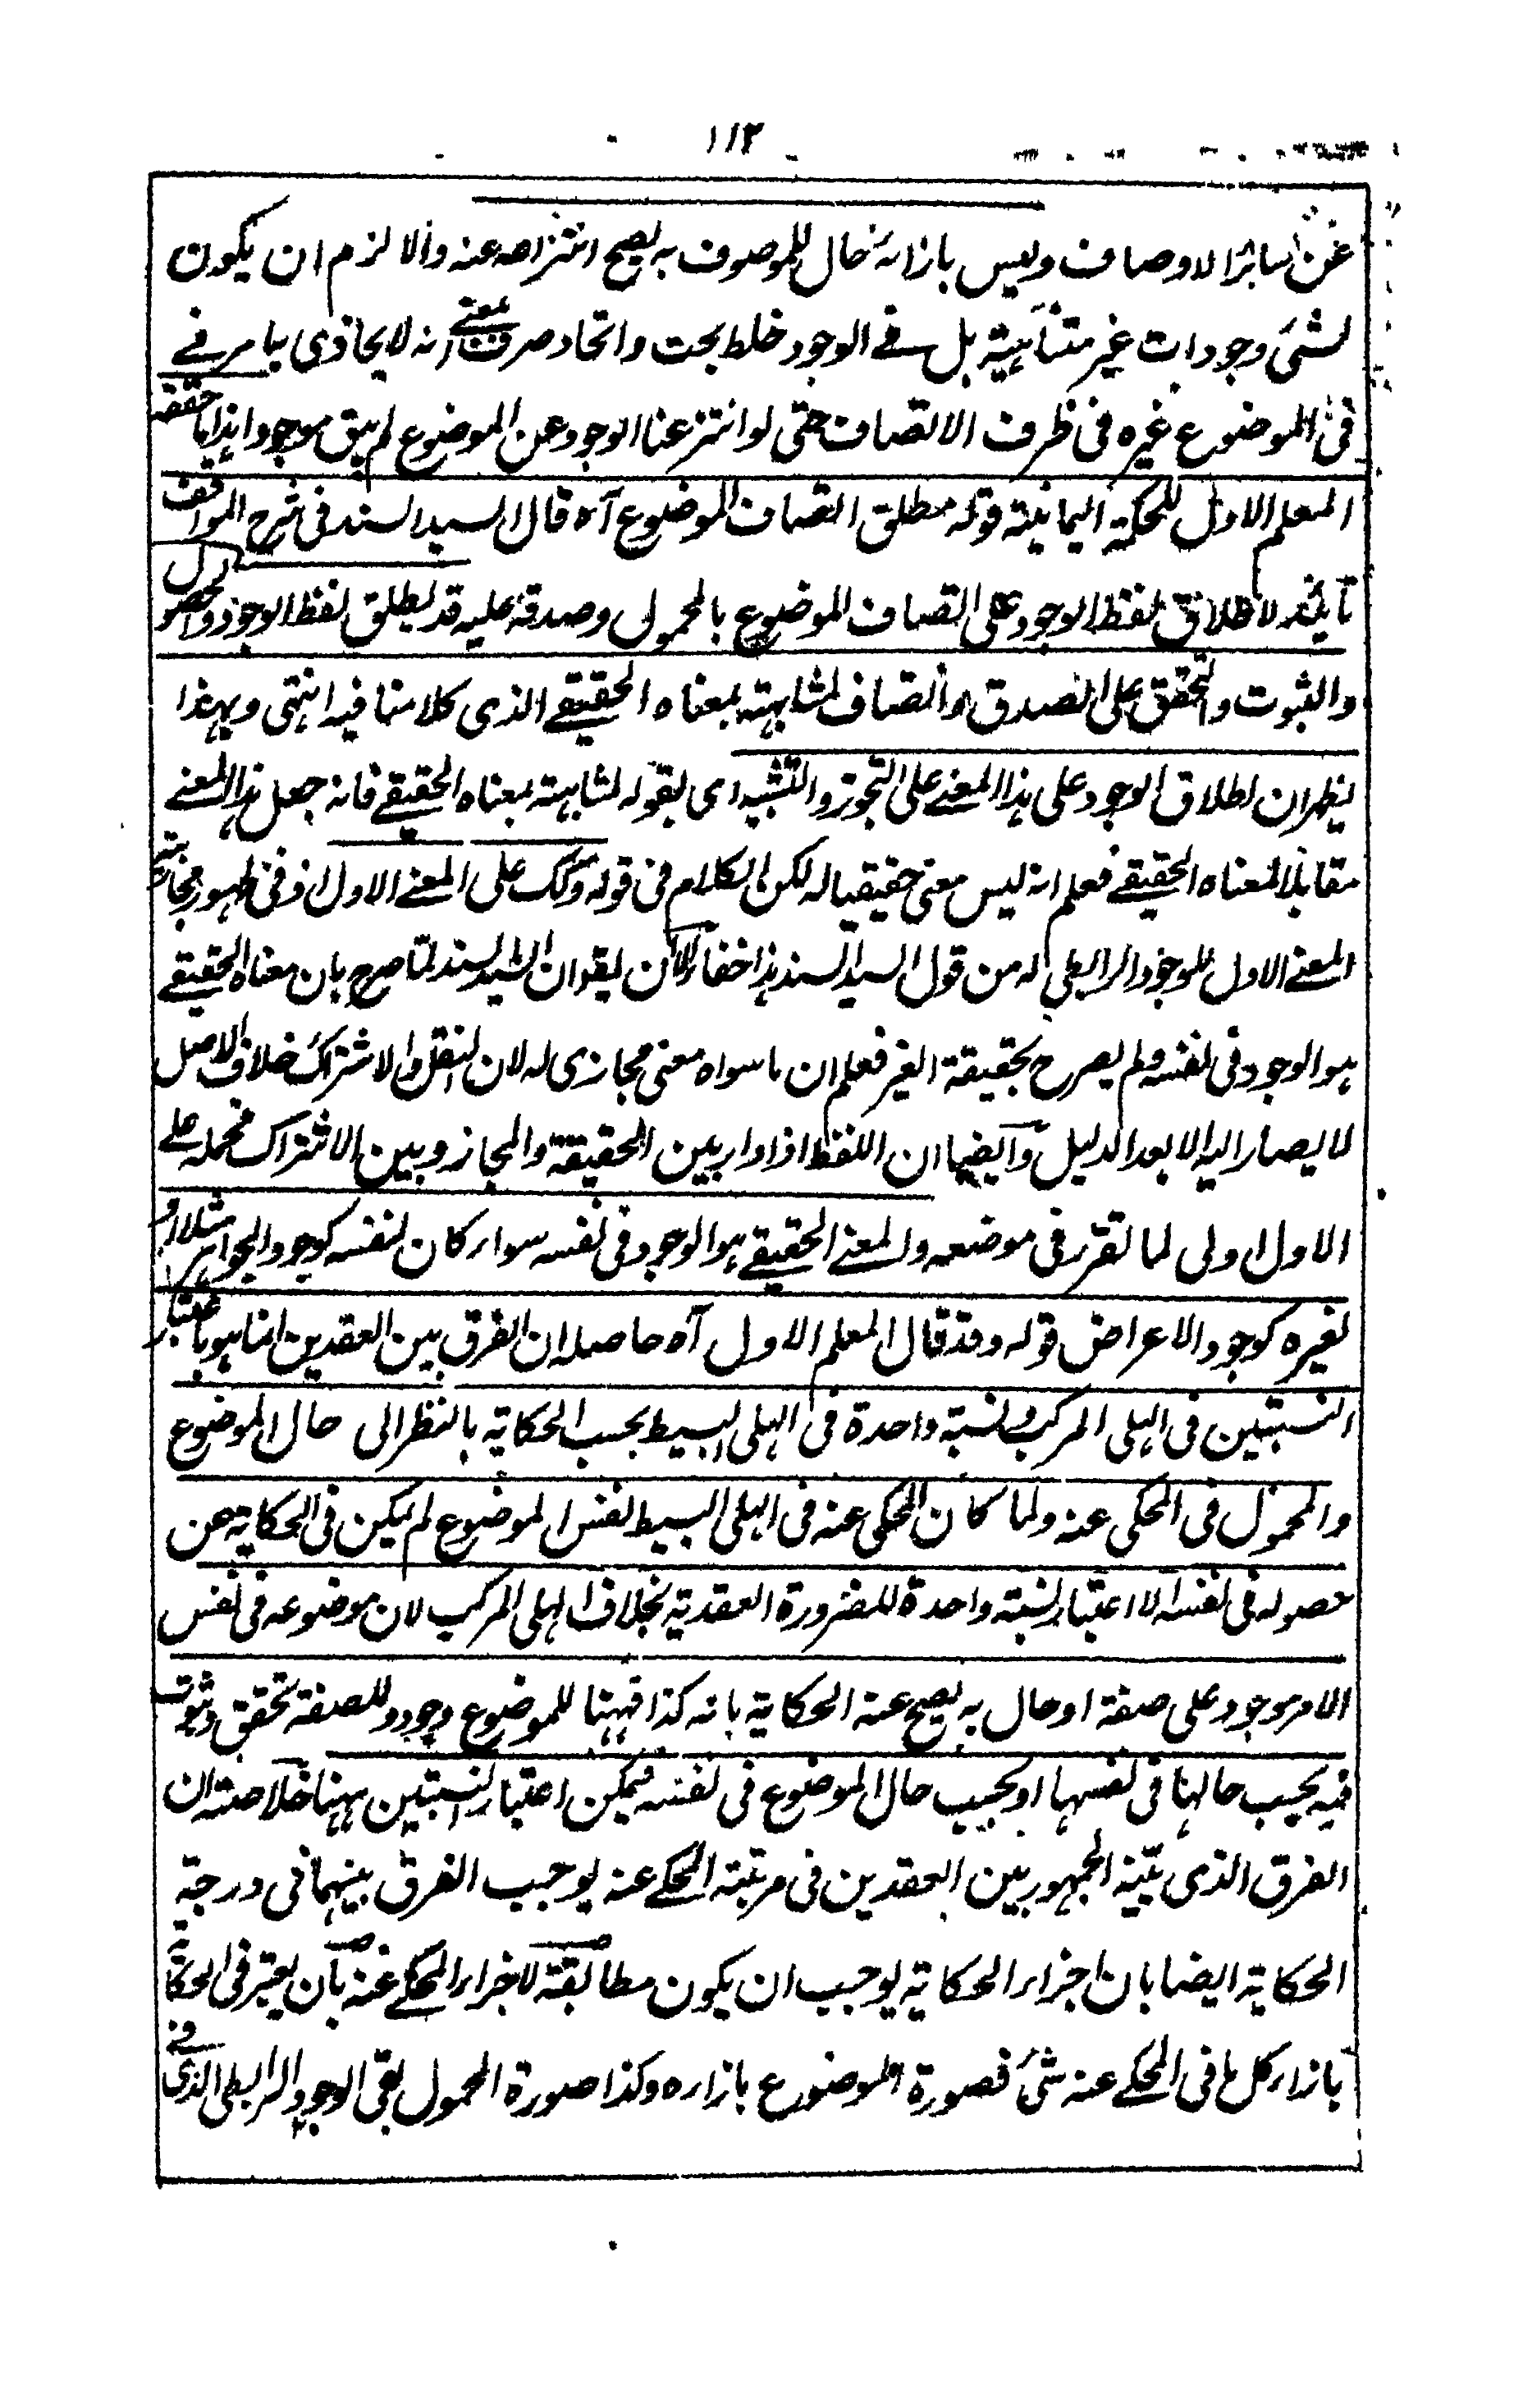 ١١٢
عن سائر الاوصاف وليس بازائه حال للموصوف به يصح انتزاعه عنه والا لزم ان يكون
لشئ وجودات غير متناهية بل فى الوجود خلط بحت واتحاد صرف بمعنى انه لا يحاذى بامر فى
فى الموضوع غيره فى ظرف الاتصاف حتى لو انتزعنا الوجود عن الموضوع لم يبق موجودا هذا ما حققه
المعلم الاول للحكمة اليمانية قوله مطلق اتصاف الموضوع آه قال السيد السند فى شرح المواقف
تائيد لاطلاق لفظ الوجود على اتصاف الموضوع بالمحمول وصدقه عليه قد يطلق لفظ الوجود والحصول
والثبوت والتحقق على الصدق والاتصاف لمشابهته بمعناه الحقيقى الذى كلامنا فيه انتهى وبهذا
يظهر ان اطلاق الوجود على هذا المعنى على التجوز والتشبيه اى بقوله لمشابهته بمعناه الحقيقى فانه جعل هذا المعنى
مقابلا لمعناه الحقيقى فعلم انه ليس معنى حقيقيا له لكن الكلام فى قوله وتلك على المعنى الاول اذ فى ظهور مجازية
المعنى الاول للوجود الرابطى له من قول السيد السند هذا خفاء الا ان يقو ان السيد السند لما صرح بان معناه الحقيقى
هو الوجود فى نفسه ولم يصرح بحقيقة الغير فعلم ان ما سواه معنى مجازى له لان النقل والاشتراك خلاف الاصل
لا يصار اليه الا بعد الدليل وايضا ان اللفظ اذا دار بين الحقيقة والمجاز وبين الاشتراك فحمله على
الاول اولى لما تقرر فى موضعه والمعنى الحقيقى هو الوجود فى نفسه سواء كان لنفسه كوجود الجواهر مثلا او
لغيره كوجود الاعراض قوله وقد قال المعلم الاول آه حاصله ان الفرق بين العقدين انما هو باعتبار
النسبتين فى الهلى المركب ونسبة واحدة فى الهلى البسيط بحسب الحكاية بالنظر الى حال الموضوع
والمحمول فى المحكى عنه ولما كان المحكى عنه فى الهلى البسيط نفس الموضوع لم يكن فى الحكاية عن
حصوله فى نفسه الا اعتبار نسبة واحدة للضرورة العقدية بخلاف الهلى المركب لان موضوعه فى نفس
الامر موجود على صفة او حال به يصح عنه الحكاية بانه كذا فههنا للموضوع وجود وللصفة تحقق وثبوت
فيه بحسب حالها فى نفسها او بحسب حال الموضوع فى نفسه فيمكن اعتبار النسبتين ههنا خلاصته ان
الفرق الذى بينه الجمهور بين العقدين فى مرتبة المحكى عنه يوجب الفرق بينهما فى درجة
الحكاية ايضا بان اجزاء الحكاية يوجب ان يكون مطابقة لاجزاء المحكى عنه بان يعتبر فى الحكاية
بازاء كل ما فى المحكى عنه شئ فصورة الموضوع بازاره وكذا صورة المحمول بقى الوجود الرابطى الذى فى